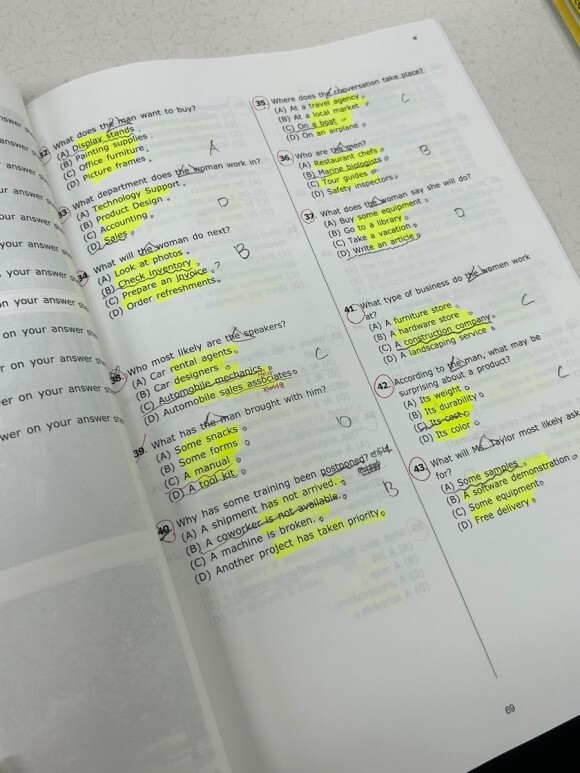 swer s
answer
answer s
ur answer s
our answer s
your answer s
your answer s
on your answer s
on your answer s
r on your answer s
er on your answer s
wer on your answer s
32. What does the man want to buy?
(A) Display stands
(B) Painting supplies
(C) Office furniture
(D) Picture frames
A
33. What department does the woman work in?
(A) Technology Support
(B) Product Design
(C) Accounting
(D) Sales
D
34. What will the woman do next?
(A) Look at photos
(B) Check inventory
(C) Prepare an invoice ?
(D) Order refreshments
B
38. Who most likely are the speakers?
(A) Car rental agents
(B) Car designers
(C) Automobile mechanics
(D) Automobile sales associates
C
39. What has the man brought with him?
(A) Some snacks
(B) Some forms
(C) A manual
(D) A tool kit
D
40. Why has some training been postponed?
(A) A shipment has not arrived.
(B) A coworker is not available.
(C) A machine is broken.
(D) Another project has taken priority.
B
35. Where does the conversation take place?
(A) At a travel agency
(B) At a local market
(C) On a boat
(D) On an airplane
C
36. Who are the men?
(A) Restaurant chefs
(B) Marine biologists
(C) Tour guides
(D) Safety inspectors
B
37. What does the woman say she will do?
(A) Buy some equipment
(B) Go to a library
(C) Take a vacation
(D) Write an article
D
41. What type of business do the women work
at?
(A) A furniture store
(B) A hardware store
(C) A construction company
(D) A landscaping service
C
42. According to the man, what may be
surprising about a product?
(A) Its weight
(B) Its durability
(C) Its cost
(D) Its color
C
43. What will Ms. Taylor most likely ask
for?
(A) Some samples
(B) A software demonstration
(C) Some equipment
(D) Free delivery
69